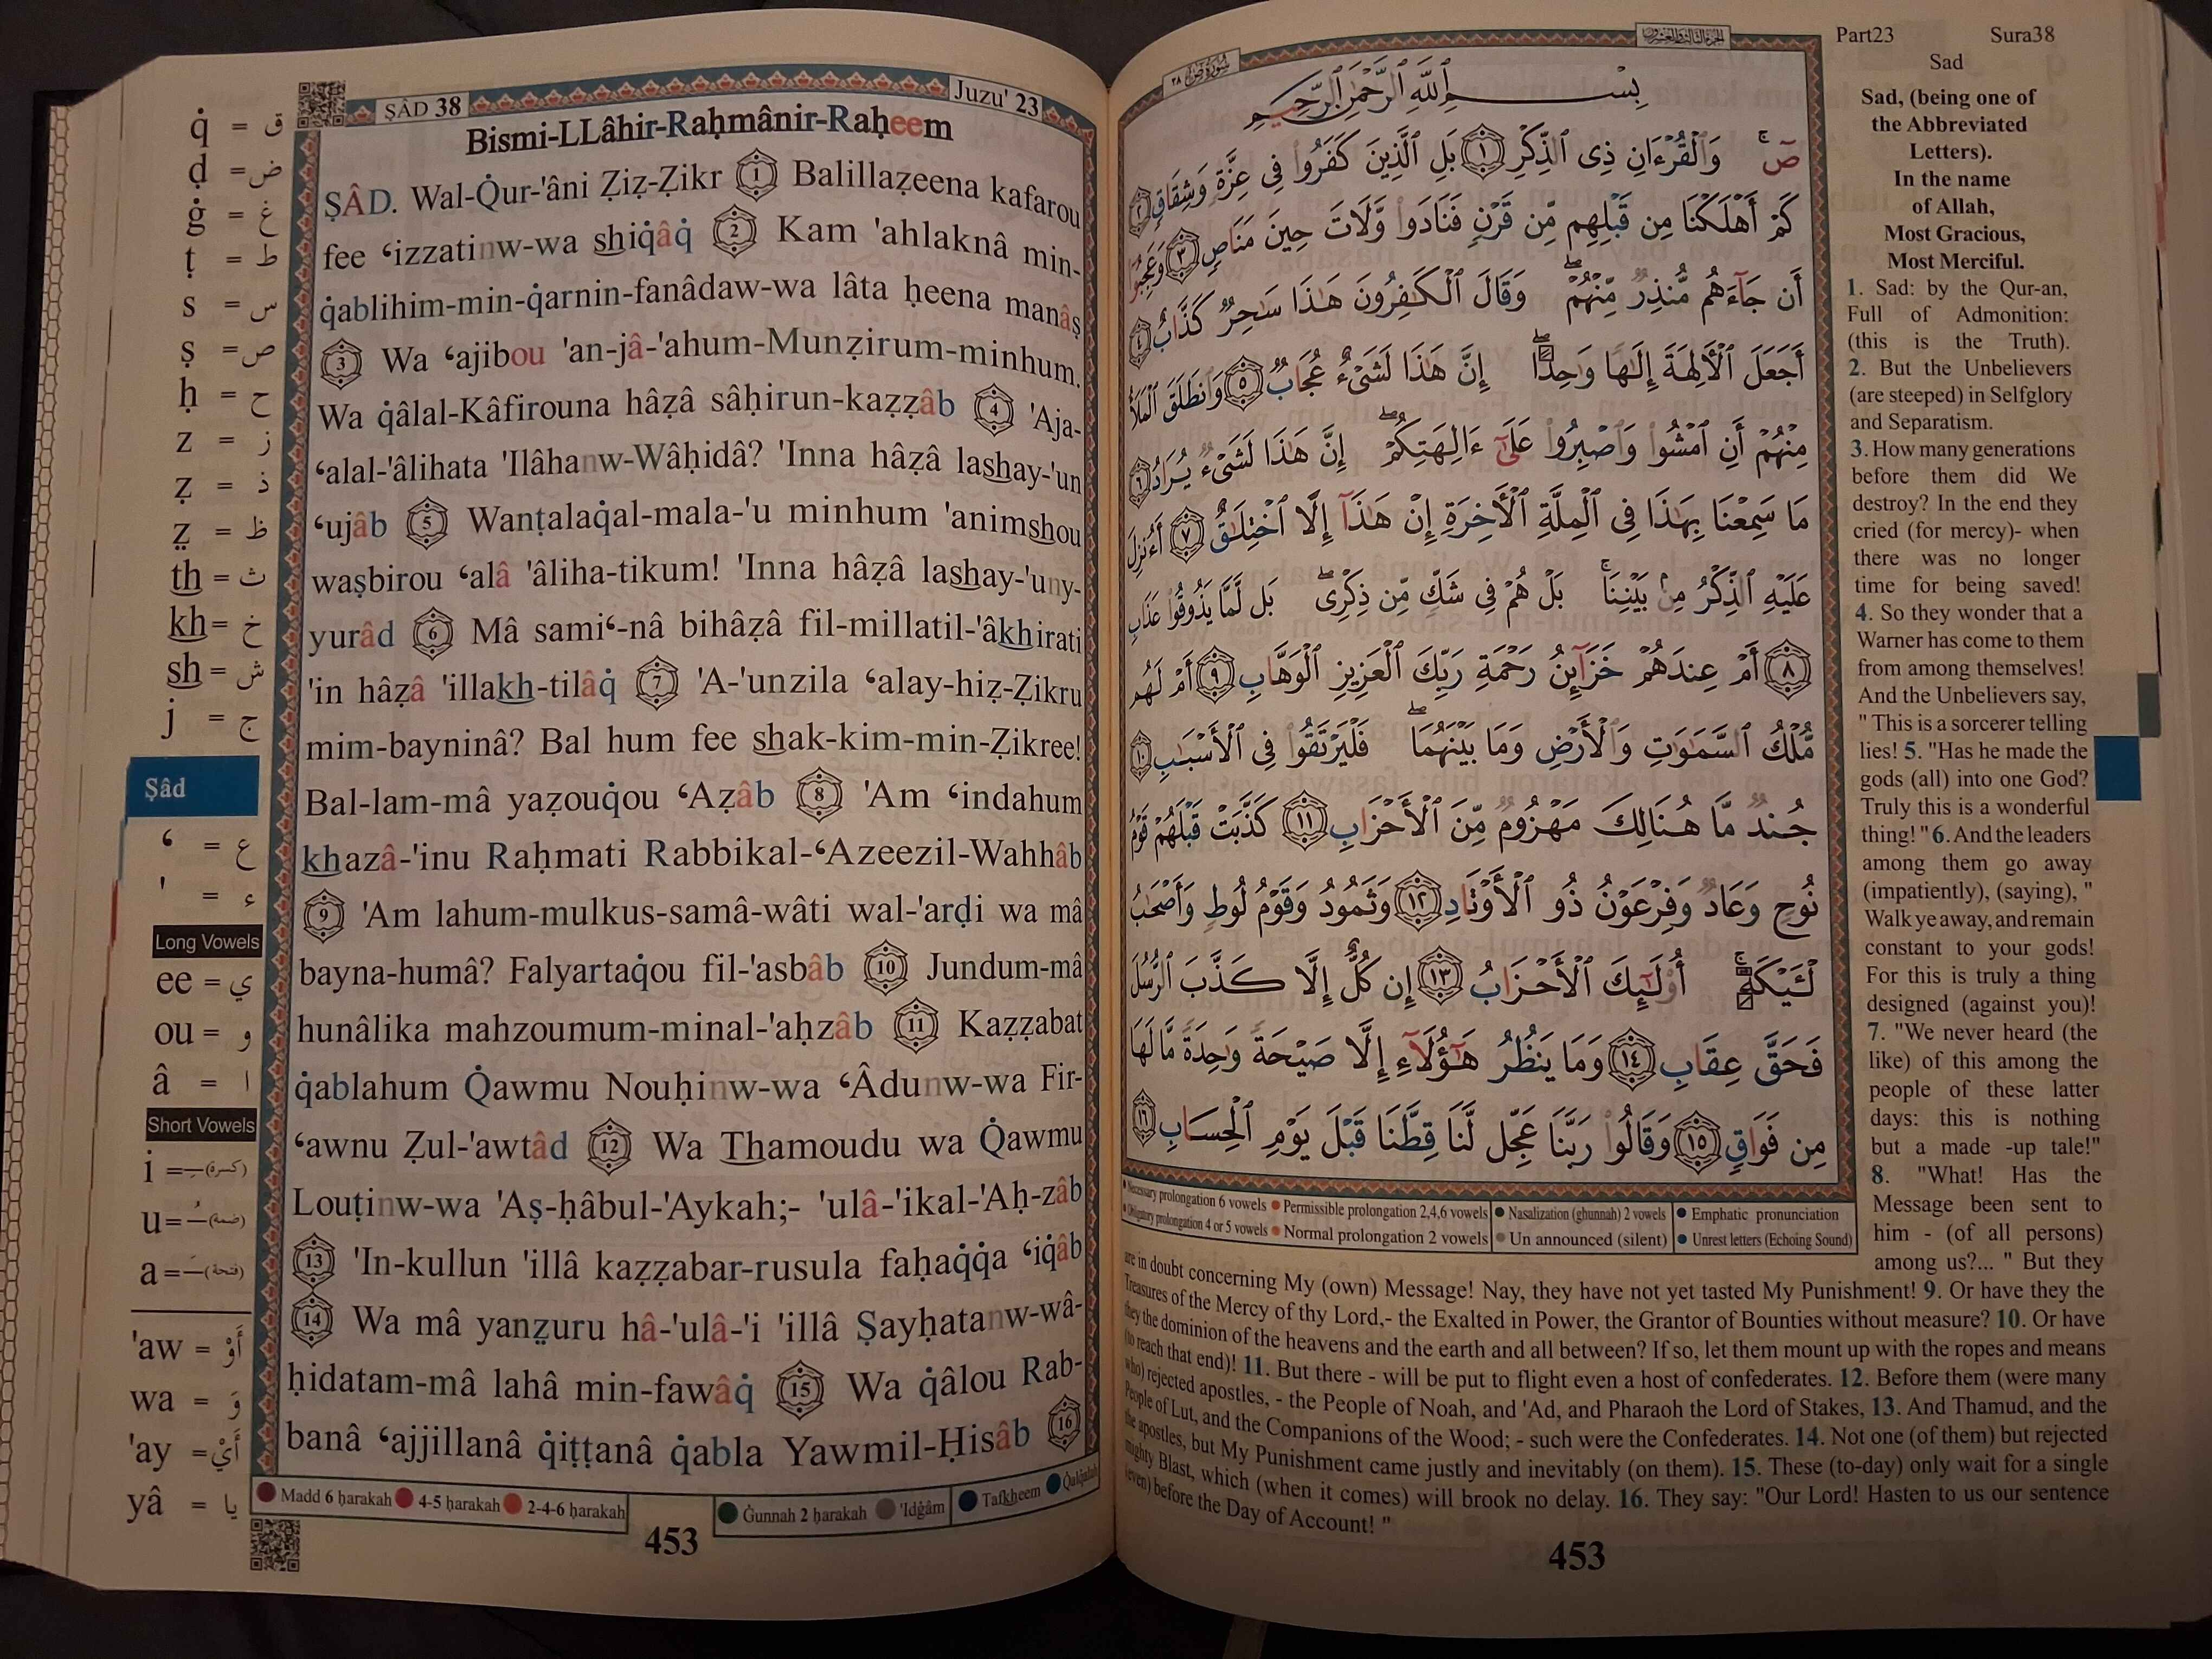 q̇ = ق
ḍ = ض
ġ = غ
ṭ = ط
s = س
ṣ = ص
ḥ = ح
z = ز
ẓ = ذ
z̤ = ظ
th = ث
kh = خ
sh = ش
j = ج
Ṣâd
ʿ = ع
' = ء
Long Vowels
ee = ي
ou = و
â = ا
Short Vowels
i = (كسرة)
u = (ضمة)
a = (فتحة)
'aw = أَوْ
wa = وَ
'ay = أَيْ
yâ = يا
ṢÂD 38
Juzu' 23
Bismi-LLâhir-Raḥmânir-Raḥeem
ṢÂD. Wal-Q̇ur-'âni Ẓiẓ-Ẓikr 1 Balillaẓeena kafarou
fee ʿizzatinw-wa shiq̇âq̇ 2 Kam 'ahlaknâ min-
q̇ablihim-min-q̇arnin-fanâdaw-wa lâta ḥeena manâṣ
3 Wa ʿajibou 'an-jâ-'ahum-Munẓirum-minhum.
Wa q̇âlal-Kâfirouna hâẓâ sâḥirun-kaẓẓâb 4 'Aja-
ʿalal-'âlihata 'Ilâhanw-Wâḥidâ? 'Inna hâẓâ lashay-'un
ʿujâb 5 Wanṭalaq̇al-mala-'u minhum 'animshou
waṣbirou ʿalâ 'âliha-tikum! 'Inna hâẓâ lashay-'uny-
yurâd 6 Mâ samiʿ-nâ bihâẓâ fil-millatil-'âkhirati
'in hâẓâ 'illakh-tilâq̇ 7 'A-'unzila ʿalay-hiẓ-Ẓikru
mim-bayninâ? Bal hum fee shak-kim-min-Ẓikree!
Bal-lam-mâ yaẓouq̇ou ʿAẓâb 8 'Am ʿindahum
khazâ-'inu Raḥmati Rabbikal-ʿAzeezil-Wahhâb
9 'Am lahum-mulkus-samâ-wâti wal-'arḍi wa mâ
bayna-humâ? Falyartaq̇ou fil-'asbâb 10 Jundum-mâ
hunâlika mahzoumum-minal-'aḥzâb 11 Kaẓẓabat
q̇ablahum Q̇awmu Nouḥinw-wa ʿÂdunw-wa Fir-
ʿawnu Ẓul-'awtâd 12 Wa Thamoudu wa Q̇awmu
Louṭinw-wa 'Aṣ-ḥâbul-'Aykah;- 'ulâ-'ikal-'Aḥ-zâb
13 'In-kullun 'illâ kaẓẓabar-rusula faḥaq̇q̇a ʿiq̇âb
14 Wa mâ yanz̤uru hâ-'ulâ-'i 'illâ Ṣayḥatanw-wâ-
ḥidatam-mâ lahâ min-fawâq̇ 15 Wa q̇âlou Rab-
banâ ʿajjillanâ q̇iṭṭanâ q̇abla Yawmil-Ḥisâb 16
Madd 6 ḥarakah 4-5 ḥarakah 2-4-6 ḥarakah
Ġunnah 2 ḥarakah 'Idġâm Tafkheem Q̇alq̇alah
453
سُورَةُ صٓ ٣٨
الجزء الثالث والعشرون
بِسْمِ ٱللَّهِ ٱلرَّحْمَٰنِ ٱلرَّحِيمِ
صٓ ۚ وَٱلْقُرْءَانِ ذِى ٱلذِّكْرِ ١ بَلِ ٱلَّذِينَ كَفَرُوا۟ فِى عِزَّةٍ وَشِقَاقٍ ٢
كَمْ أَهْلَكْنَا مِن قَبْلِهِم مِّن قَرْنٍ فَنَادَوا۟ وَّلَاتَ حِينَ مَنَاصٍ ٣ وَعَجِبُوٓا۟
أَن جَآءَهُم مُّنذِرٌ مِّنْهُمْ ۖ وَقَالَ ٱلْكَٰفِرُونَ هَٰذَا سَٰحِرٌ كَذَّابٌ ٤
أَجَعَلَ ٱلْءَالِهَةَ إِلَٰهًا وَٰحِدًا ۖ إِنَّ هَٰذَا لَشَىْءٌ عُجَابٌ ٥ وَٱنطَلَقَ ٱلْمَلَأُ
مِنْهُمْ أَنِ ٱمْشُوا۟ وَٱصْبِرُوا۟ عَلَىٰٓ ءَالِهَتِكُمْ ۖ إِنَّ هَٰذَا لَشَىْءٌ يُرَادُ ٦
مَا سَمِعْنَا بِهَٰذَا فِى ٱلْمِلَّةِ ٱلْءَاخِرَةِ إِنْ هَٰذَآ إِلَّا ٱخْتِلَٰقٌ ٧ أَءُنزِلَ
عَلَيْهِ ٱلذِّكْرُ مِنۢ بَيْنِنَا ۚ بَلْ هُمْ فِى شَكٍّ مِّن ذِكْرِى ۖ بَل لَّمَّا يَذُوقُوا۟ عَذَابِ
٨ أَمْ عِندَهُمْ خَزَآئِنُ رَحْمَةِ رَبِّكَ ٱلْعَزِيزِ ٱلْوَهَّابِ ٩ أَمْ لَهُم
مُّلْكُ ٱلسَّمَٰوَٰتِ وَٱلْأَرْضِ وَمَا بَيْنَهُمَا ۖ فَلْيَرْتَقُوا۟ فِى ٱلْأَسْبَٰبِ ١٠
جُندٌ مَّا هُنَالِكَ مَهْزُومٌ مِّنَ ٱلْأَحْزَابِ ١١ كَذَّبَتْ قَبْلَهُمْ قَوْمُ
نُوحٍ وَعَادٌ وَفِرْعَوْنُ ذُو ٱلْأَوْتَادِ ١٢ وَثَمُودُ وَقَوْمُ لُوطٍ وَأَصْحَٰبُ
لْـَٔيْكَةِ ۚ أُو۟لَٰٓئِكَ ٱلْأَحْزَابُ ١٣ إِن كُلٌّ إِلَّا كَذَّبَ ٱلرُّسُلَ
فَحَقَّ عِقَابِ ١٤ وَمَا يَنظُرُ هَٰٓؤُلَآءِ إِلَّا صَيْحَةً وَٰحِدَةً مَّا لَهَا
مِن فَوَاقٍ ١٥ وَقَالُوا۟ رَبَّنَا عَجِّل لَّنَا قِطَّنَا قَبْلَ يَوْمِ ٱلْحِسَابِ ١٦
Necessary prolongation 6 vowels Permissible prolongation 2,4,6 vowels Nasalization (ghunnah) 2 vowels Emphatic pronunciation
Obligatory prolongation 4 or 5 vowels Normal prolongation 2 vowels Un announced (silent) Unrest letters (Echoing Sound)
Part23 Sura38
Sad
Sad, (being one of
the Abbreviated
Letters).
In the name
of Allah,
Most Gracious,
Most Merciful.
1. Sad: by the Qur-an,
Full of Admonition:
(this is the Truth).
2. But the Unbelievers
(are steeped) in Selfglory
and Separatism.
3. How many generations
before them did We
destroy? In the end they
cried (for mercy)- when
there was no longer
time for being saved!
4. So they wonder that a
Warner has come to them
from among themselves!
And the Unbelievers say,
" This is a sorcerer telling
lies! 5. "Has he made the
gods (all) into one God?
Truly this is a wonderful
thing! "6. And the leaders
among them go away
(impatiently), (saying), "
Walk ye away, and remain
constant to your gods!
For this is truly a thing
designed (against you)!
7. "We never heard (the
like) of this among the
people of these latter
days: this is nothing
but a made -up tale!"
8. "What! Has the
Message been sent to
him - (of all persons)
among us?... " But they
are in doubt concerning My (own) Message! Nay, they have not yet tasted My Punishment! 9. Or have they the
Treasures of the Mercy of thy Lord,- the Exalted in Power, the Grantor of Bounties without measure? 10. Or have
they the dominion of the heavens and the earth and all between? If so, let them mount up with the ropes and means
(to reach that end)! 11. But there - will be put to flight even a host of confederates. 12. Before them (were many
who) rejected apostles, - the People of Noah, and 'Ad, and Pharaoh the Lord of Stakes, 13. And Thamud, and the
People of Lut, and the Companions of the Wood; - such were the Confederates. 14. Not one (of them) but rejected
the apostles, but My Punishment came justly and inevitably (on them). 15. These (to-day) only wait for a single
mighty Blast, which (when it comes) will brook no delay. 16. They say: "Our Lord! Hasten to us our sentence
(even) before the Day of Account! "
453